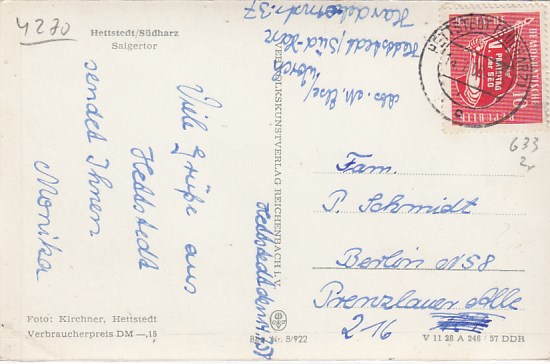 4270
Hettstedt/Südharz
Saigertor
Viele Grüße aus
Hettstedt
sendet Ihnen
Monika
Foto: Kirchner, Hettstedt
Verbraucherpreis DM —,15
VOLKSKUNSTVERLAG REICHENBACH i. V.
Nr. 8/922
Hettstedt den
Abs. M. Else
Hettstedt/Süd-Harz
37
HETTSTEDT
DEUTSCHE DEMOKRATISCHE
REPUBLIK
10
633
Fam.
P. Schmidt
Berlin N58
Prenzlauer Alle
216
V 11 28 A 246/57 DDR